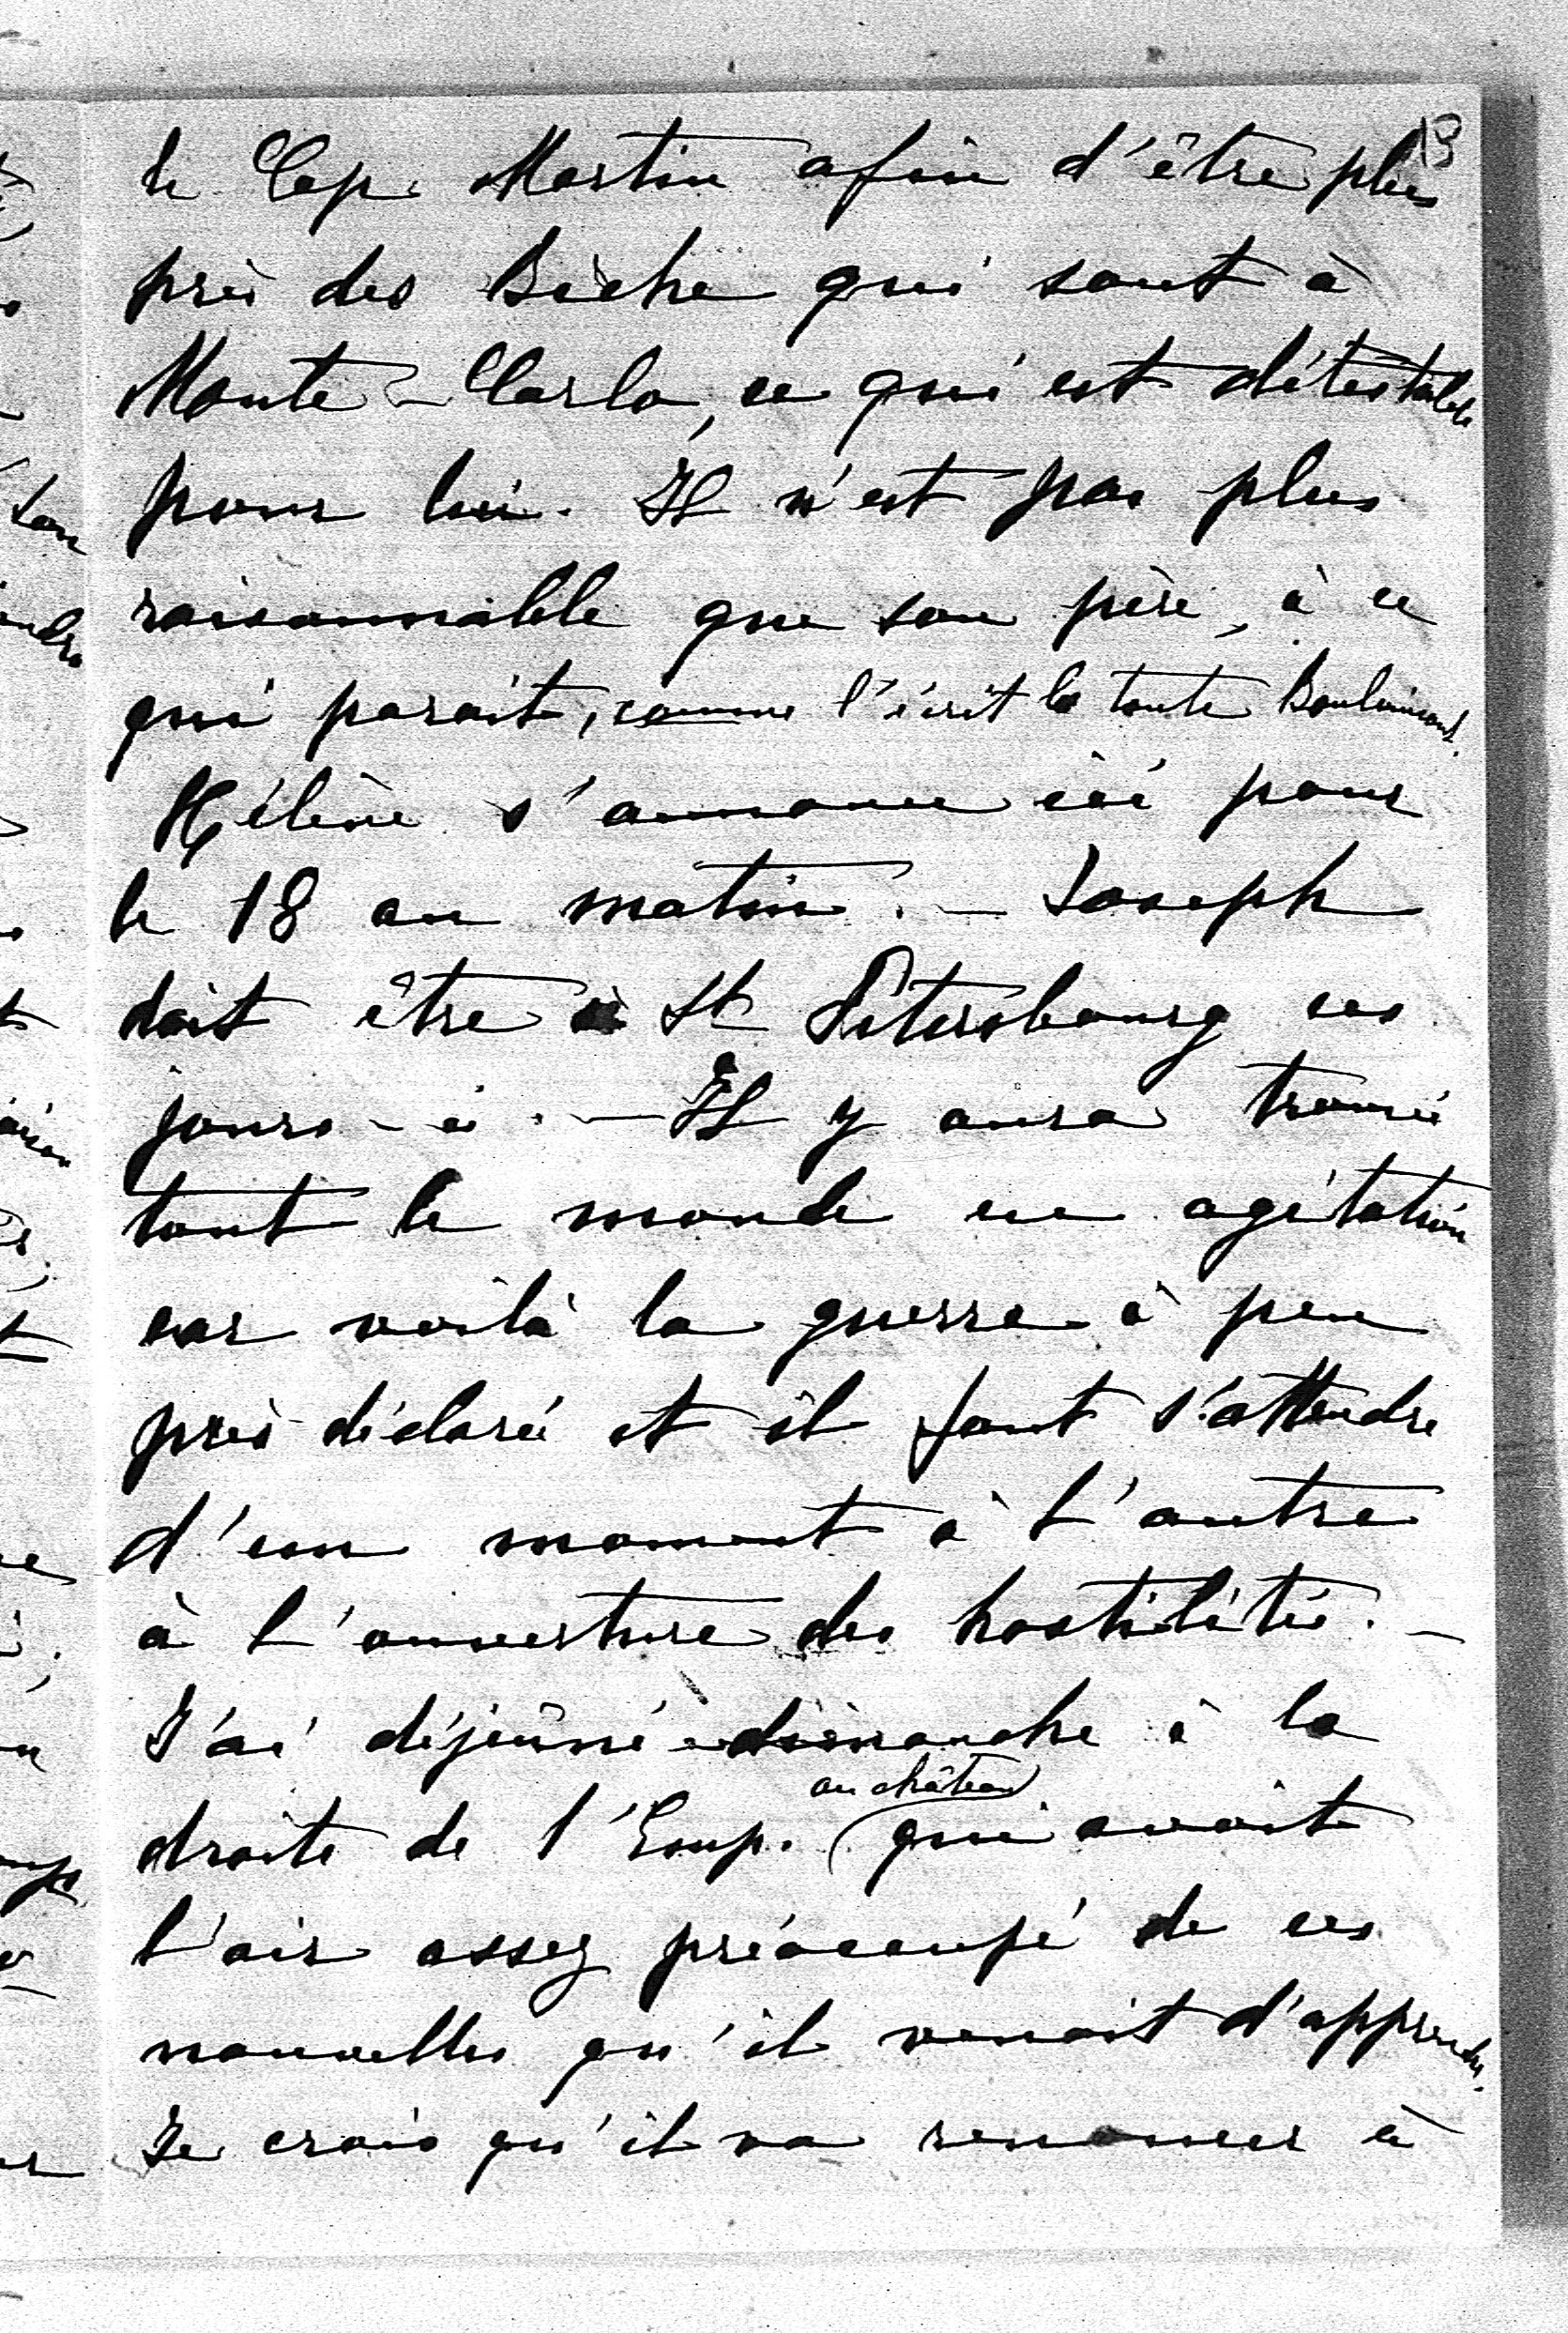 13
le Cap Martin afin d'être plus
près des Biche qui sont à
Monte-Carlo, ce qui est détestable
pour lui. Il n'est pas plus
raisonnable que son père, à ce
qui parait, comme l'écrit la tante
Hélène s'annonce ici pour
le 18 au matin. – Joseph
doit être à St Pétersbourg ces
jours-ci. – Il y aura trouvé
tout le monde en agitation
car voilà la guerre à peu
près déclaré et il faut s'attendre
d'un moment à l'autre
à l'ouverture des hostilités. –
J'ai déjeûné dimanche à la
au château
droite de l'Emp. qui avait
l'air assez préoccupé de ces
nouvelles qu'il venait d'apprendre.
Je crois qu'il va renoncer à